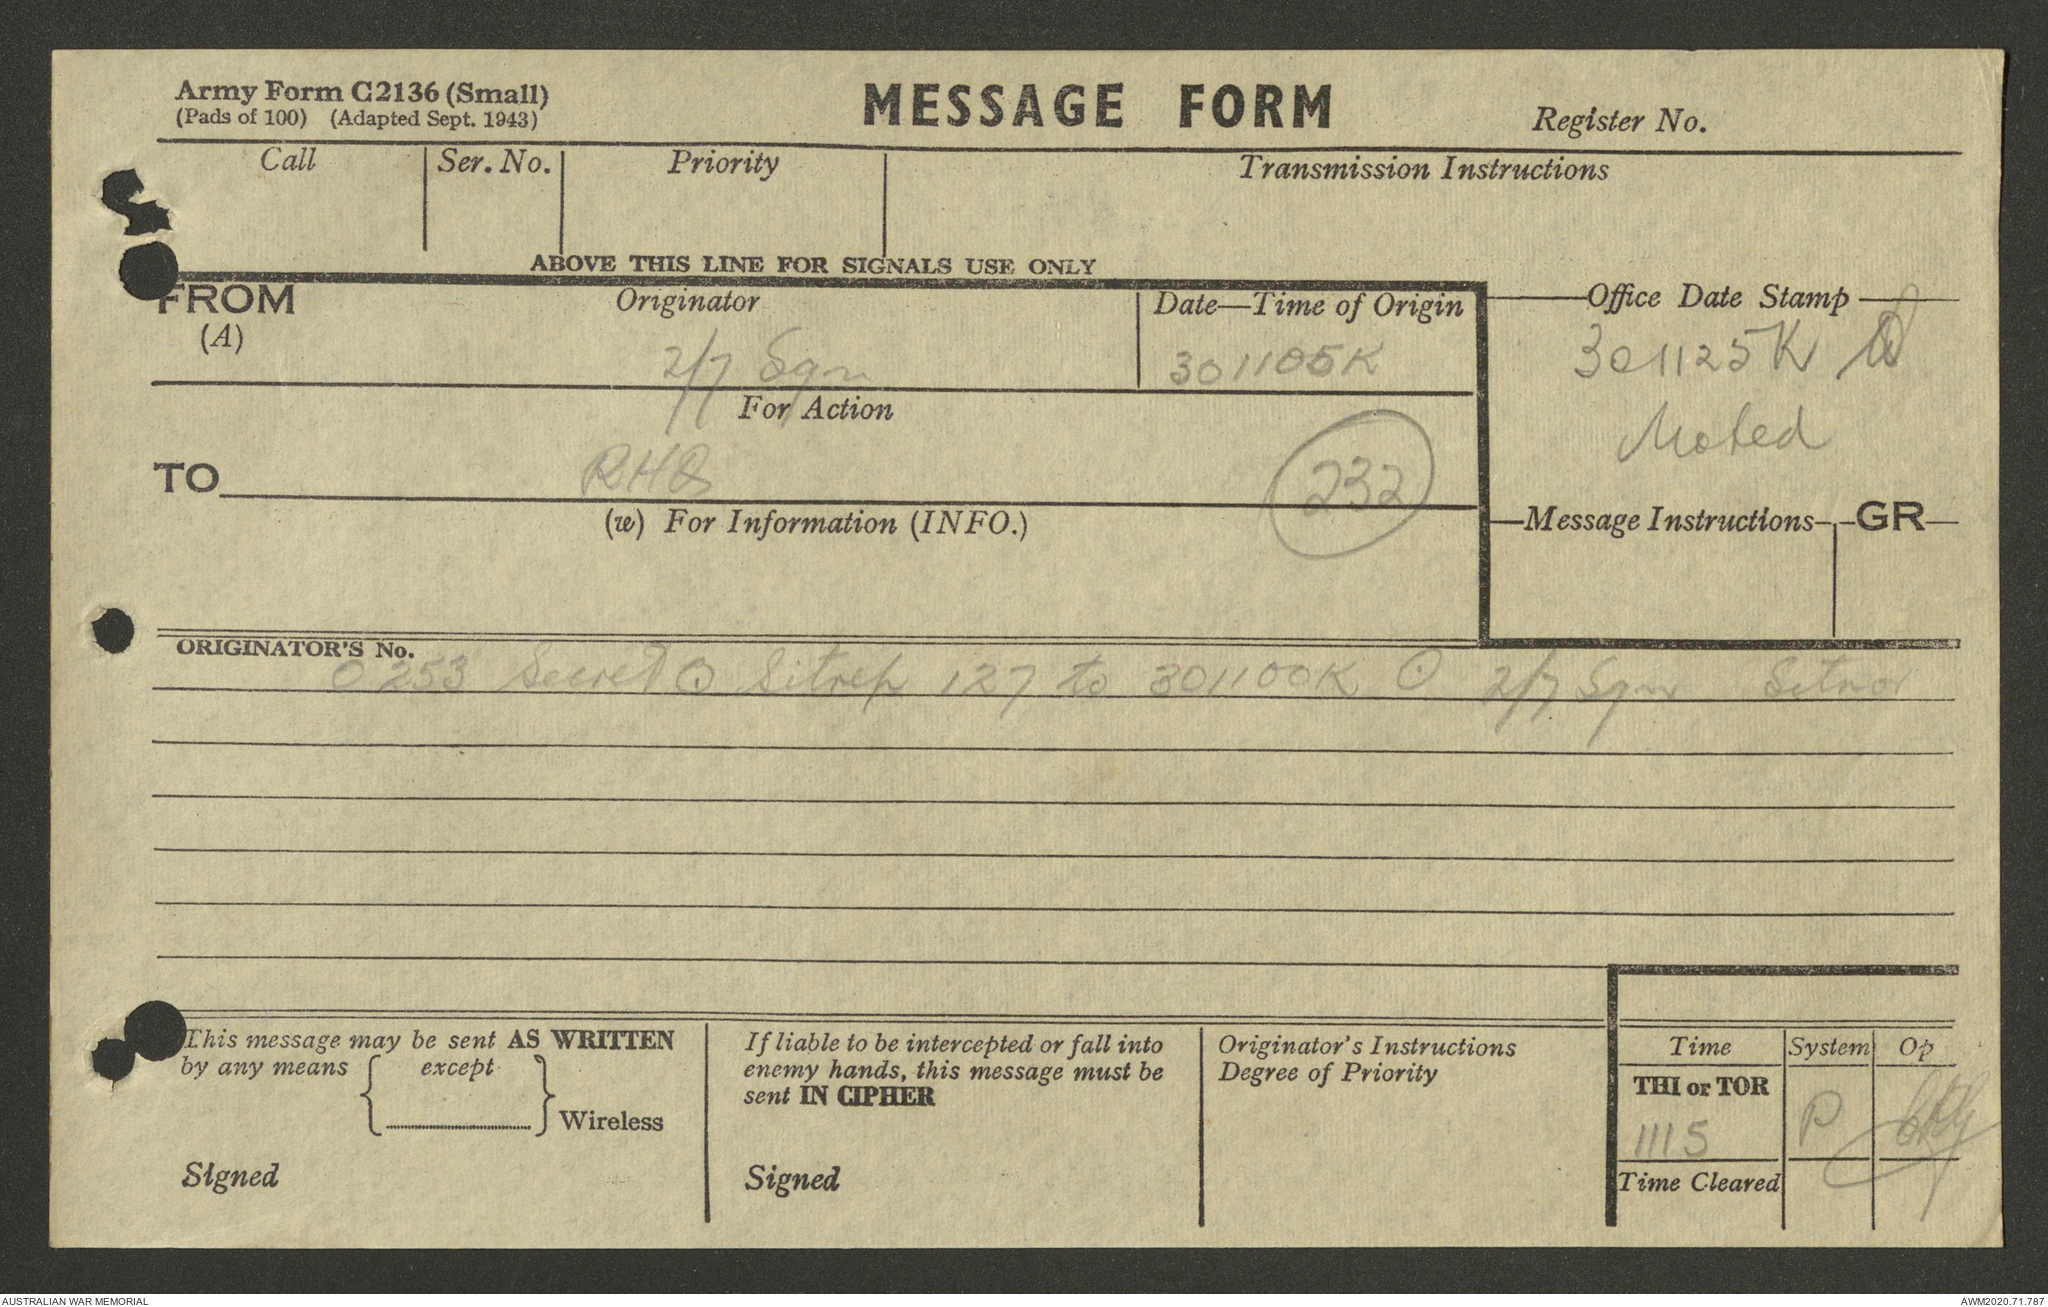 Army Form C2136 (Small)
(Pads of 100) (Adapted Sept. 1943)
MESSAGE FORM
Register No.
Call
Ser. No.
Priority
Transmission Instructions
ABOVE THIS LINE FOR SIGNALS USE ONLY
FROM
(A)
Originator
2/7 Sqn
Date—Time of Origin
301105K
Office Date Stamp
301125K
Noted
For Action
TO
RHQ
232
(w) For Information (INFO.)
Message Instructions
GR
ORIGINATOR'S No.
O 253 Secret ⊙ Sitrep 127 to 301100K ⊙ 2/7 Sqn Sitnor
This message may be sent AS WRITTEN
by any means { except } Wireless
Signed
If liable to be intercepted or fall into
enemy hands, this message must be
sent IN CIPHER
Signed
Originator's Instructions
Degree of Priority
Time
System
Op
THI or TOR
1115
P
Time Cleared
AUSTRALIAN WAR MEMORIAL
AWM2020.71.787